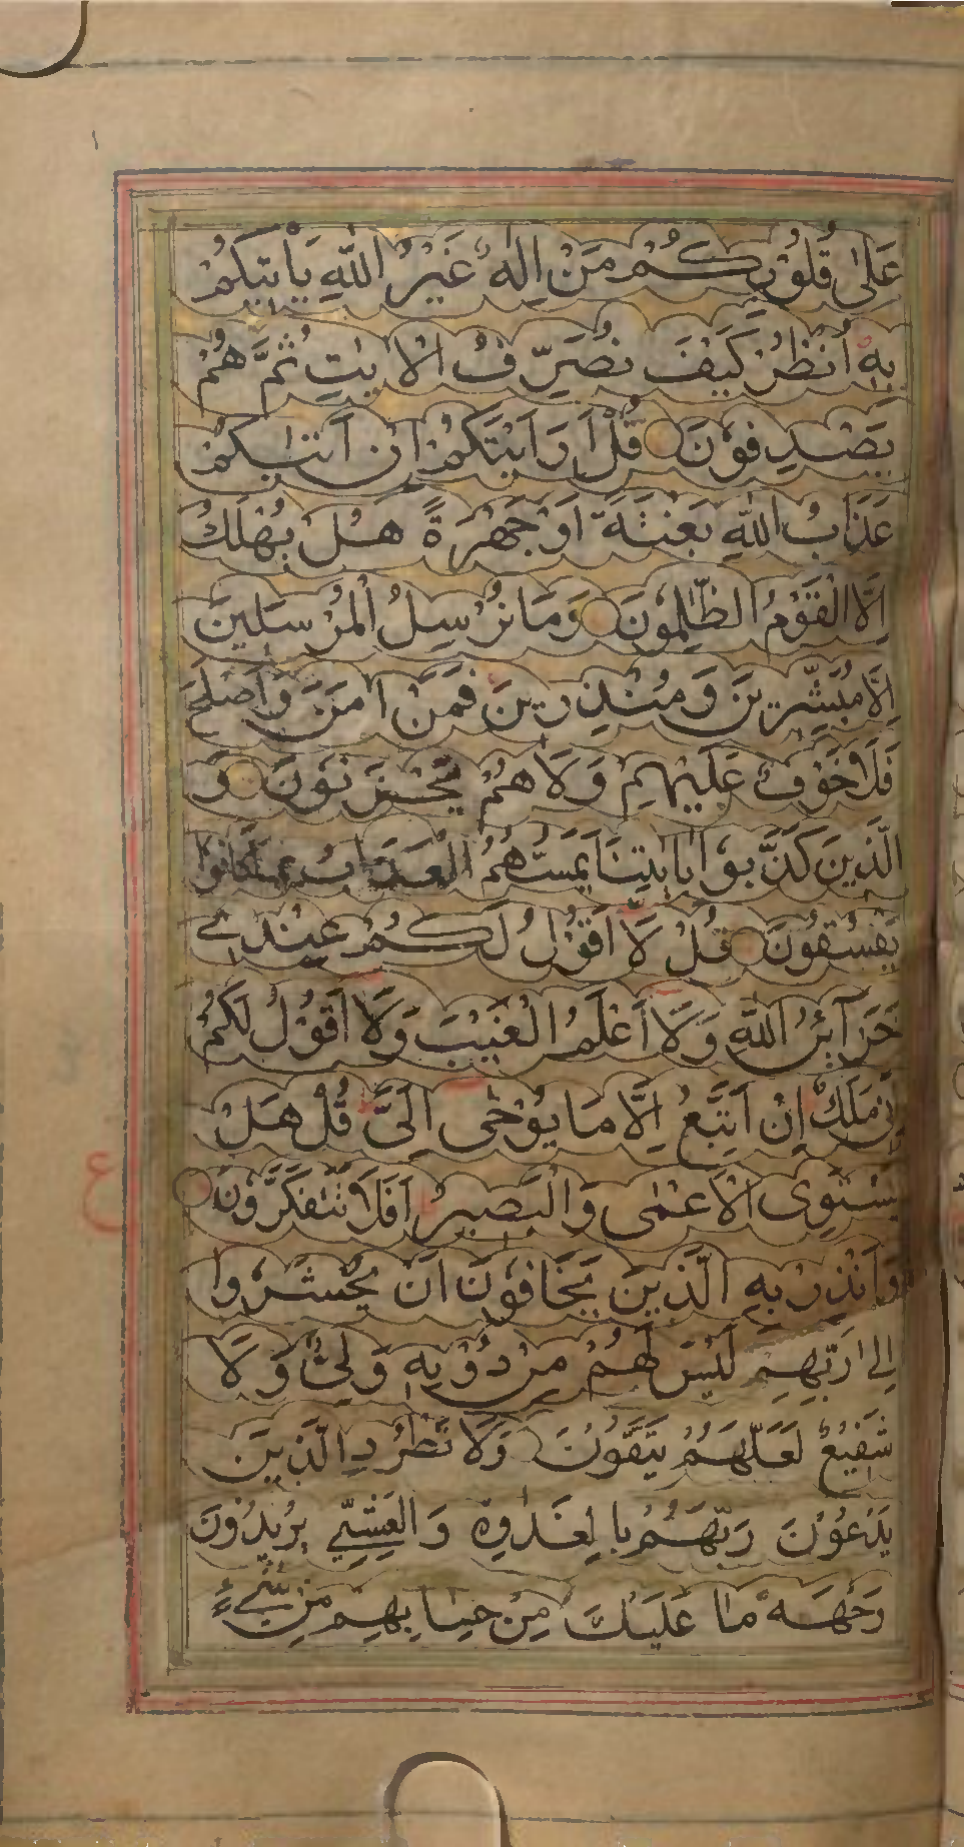 عَلٰى قُلُوْبِكُمْ مَنْ اِلٰهٌ غَيْرُ اللّٰهِ يَأْتِيكُمْ
بِهٖ اُنْظُرْ كَيْفَ نُصَرِّفُ الْاٰيٰتِ ثُمَّ هُمْ
يَصْدِفُوْنَ قُلْ اَرَاَيْتَكُمْ اِنْ اَتٰىكُمْ
عَذَابُ اللّٰهِ بَغْتَةً اَوْ جَهْرَةً هَلْ يُهْلَكُ
اِلَّا الْقَوْمُ الظّٰلِمُوْنَ وَمَا نُرْسِلُ الْمُرْسَلِينَ
اِلَّا مُبَشِّرِينَ وَمُنْذِرِينَ فَمَنْ اٰمَنَ وَاَصْلَحَ
فَلَا خَوْفٌ عَلَيْهِمْ وَلَا هُمْ يَحْزَنُوْنَ وَ
الَّذِينَ كَذَّبُوْا بِاٰيٰتِنَا يَمَسُّهُمُ الْعَذَابُ بِمَا كَانُوْا
يَفْسُقُوْنَ قُلْ لَّا اَقُوْلُ لَكُمْ عِنْدِيْ
خَزَآئِنُ اللّٰهِ وَلَا اَعْلَمُ الْغَيْبَ وَلَا اَقُوْلُ لَكُمْ
اِنِّيْ مَلَكٌ اِنْ اَتَّبِعُ اِلَّا مَا يُوْحٰى اِلَيَّ قُلْ هَلْ
يَسْتَوِى الْاَعْمٰى وَالْبَصِيْرُ اَفَلَا تَتَفَكَّرُوْنَ
ع
وَاَنْذِرْ بِهِ الَّذِينَ يَخَافُوْنَ اَنْ يُّحْشَرُوْا
اِلٰى رَبِّهِمْ لَيْسَ لَهُمْ مِنْ دُوْنِهٖ وَلِيٌّ وَلَا
شَفِيْعٌ لَعَلَّهُمْ يَتَّقُوْنَ وَلَا تَطْرُدِ الَّذِينَ
يَدْعُوْنَ رَبَّهُمْ بِالْغَدٰوةِ وَالْعَشِيِّ يُرِيْدُوْنَ
وَجْهَهٗ مَا عَلَيْكَ مِنْ حِسَابِهِمْ مِنْ شَيْءٍ